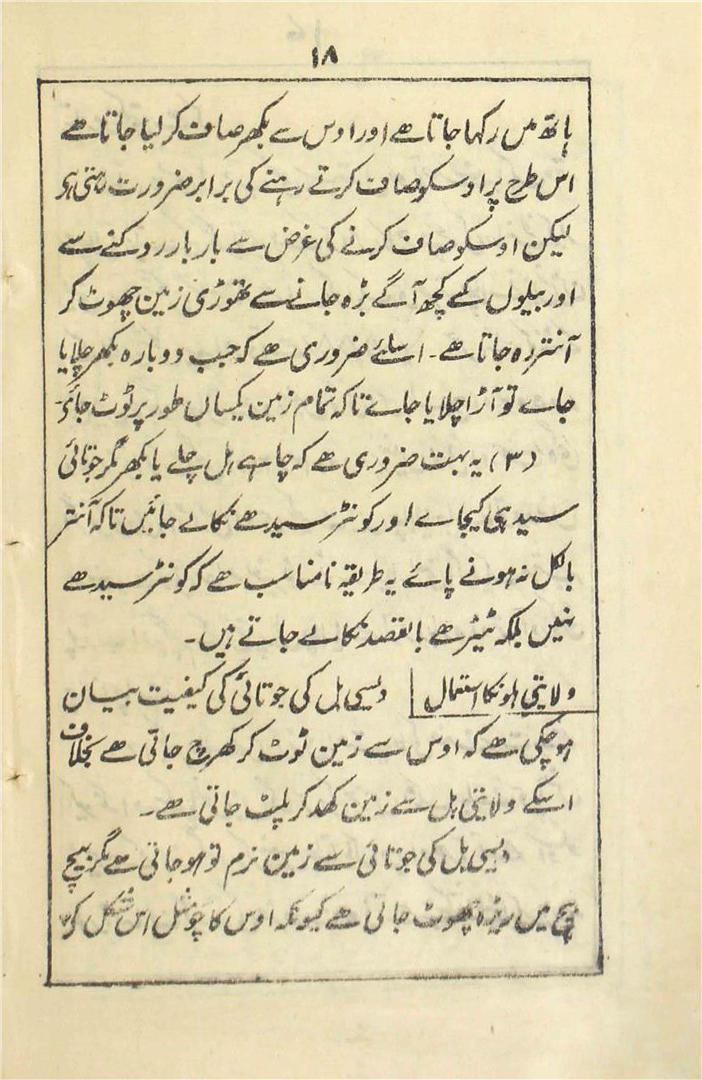 ۱۸
ہاتھ میں رکھا جاتا ہے اور اوس سے بکھر صاف کر لیا جاتا ہے
اس طرح پر اوسکو صاف کرتے رہنے کی برابر ضرورت رہتی ہو
لیکن اوسکو صاف کرنے کی غرض سے بار بار روکنے سے
اور بیلوں کے کچھ آگے بڑہ جانے سے تھوڑی زمین چھوٹ کر
آنتر رہ جاتا ہے۔ اسلئے ضروری ہے کہ جب دوبارہ بکھر چلایا
جاے تو آڑا چلایا جاے تاکہ تمام زمین یکساں طور پر ٹوٹ جائے۔
(۳) یہ بہت ضروری ہے کہ چاہے ہل چلے یا بکھر مگر جوتائی
سیدہی کیجاے اور کونٹر سیدھے نکالے جائیں تاکہ آنتر
بالکل نہ ہونے پائے یہ طریقہ نامناسب ہے کہ کونٹر سیدھے
نہیں بلکہ ٹیڑھے بالقصد نکالے جاتے ہیں۔
ولایتی ہلونکا استعمال دیسی ہل کی جوتائی کی کیفیت بیان
ہوچکی ہے کہ اوس سے زمین ٹوٹ کر کھرچ جاتی ہے بخلاف
اسکے ولایتی ہل سے زمین کھد کر پلٹ جاتی ہے۔
دیسی ہل کی جوتائی سے زمین نرم تو ہوجاتی ہے مگر بیچ
بیچ میں ریزہ چھوٹ جاتی ہے کیونکہ اوس کا اس شکل کا